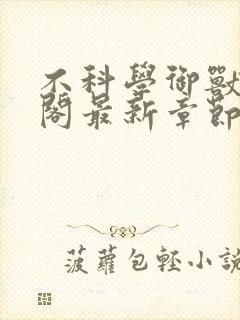 不科學御獸
閣最新章節
菠蘿包輕小說